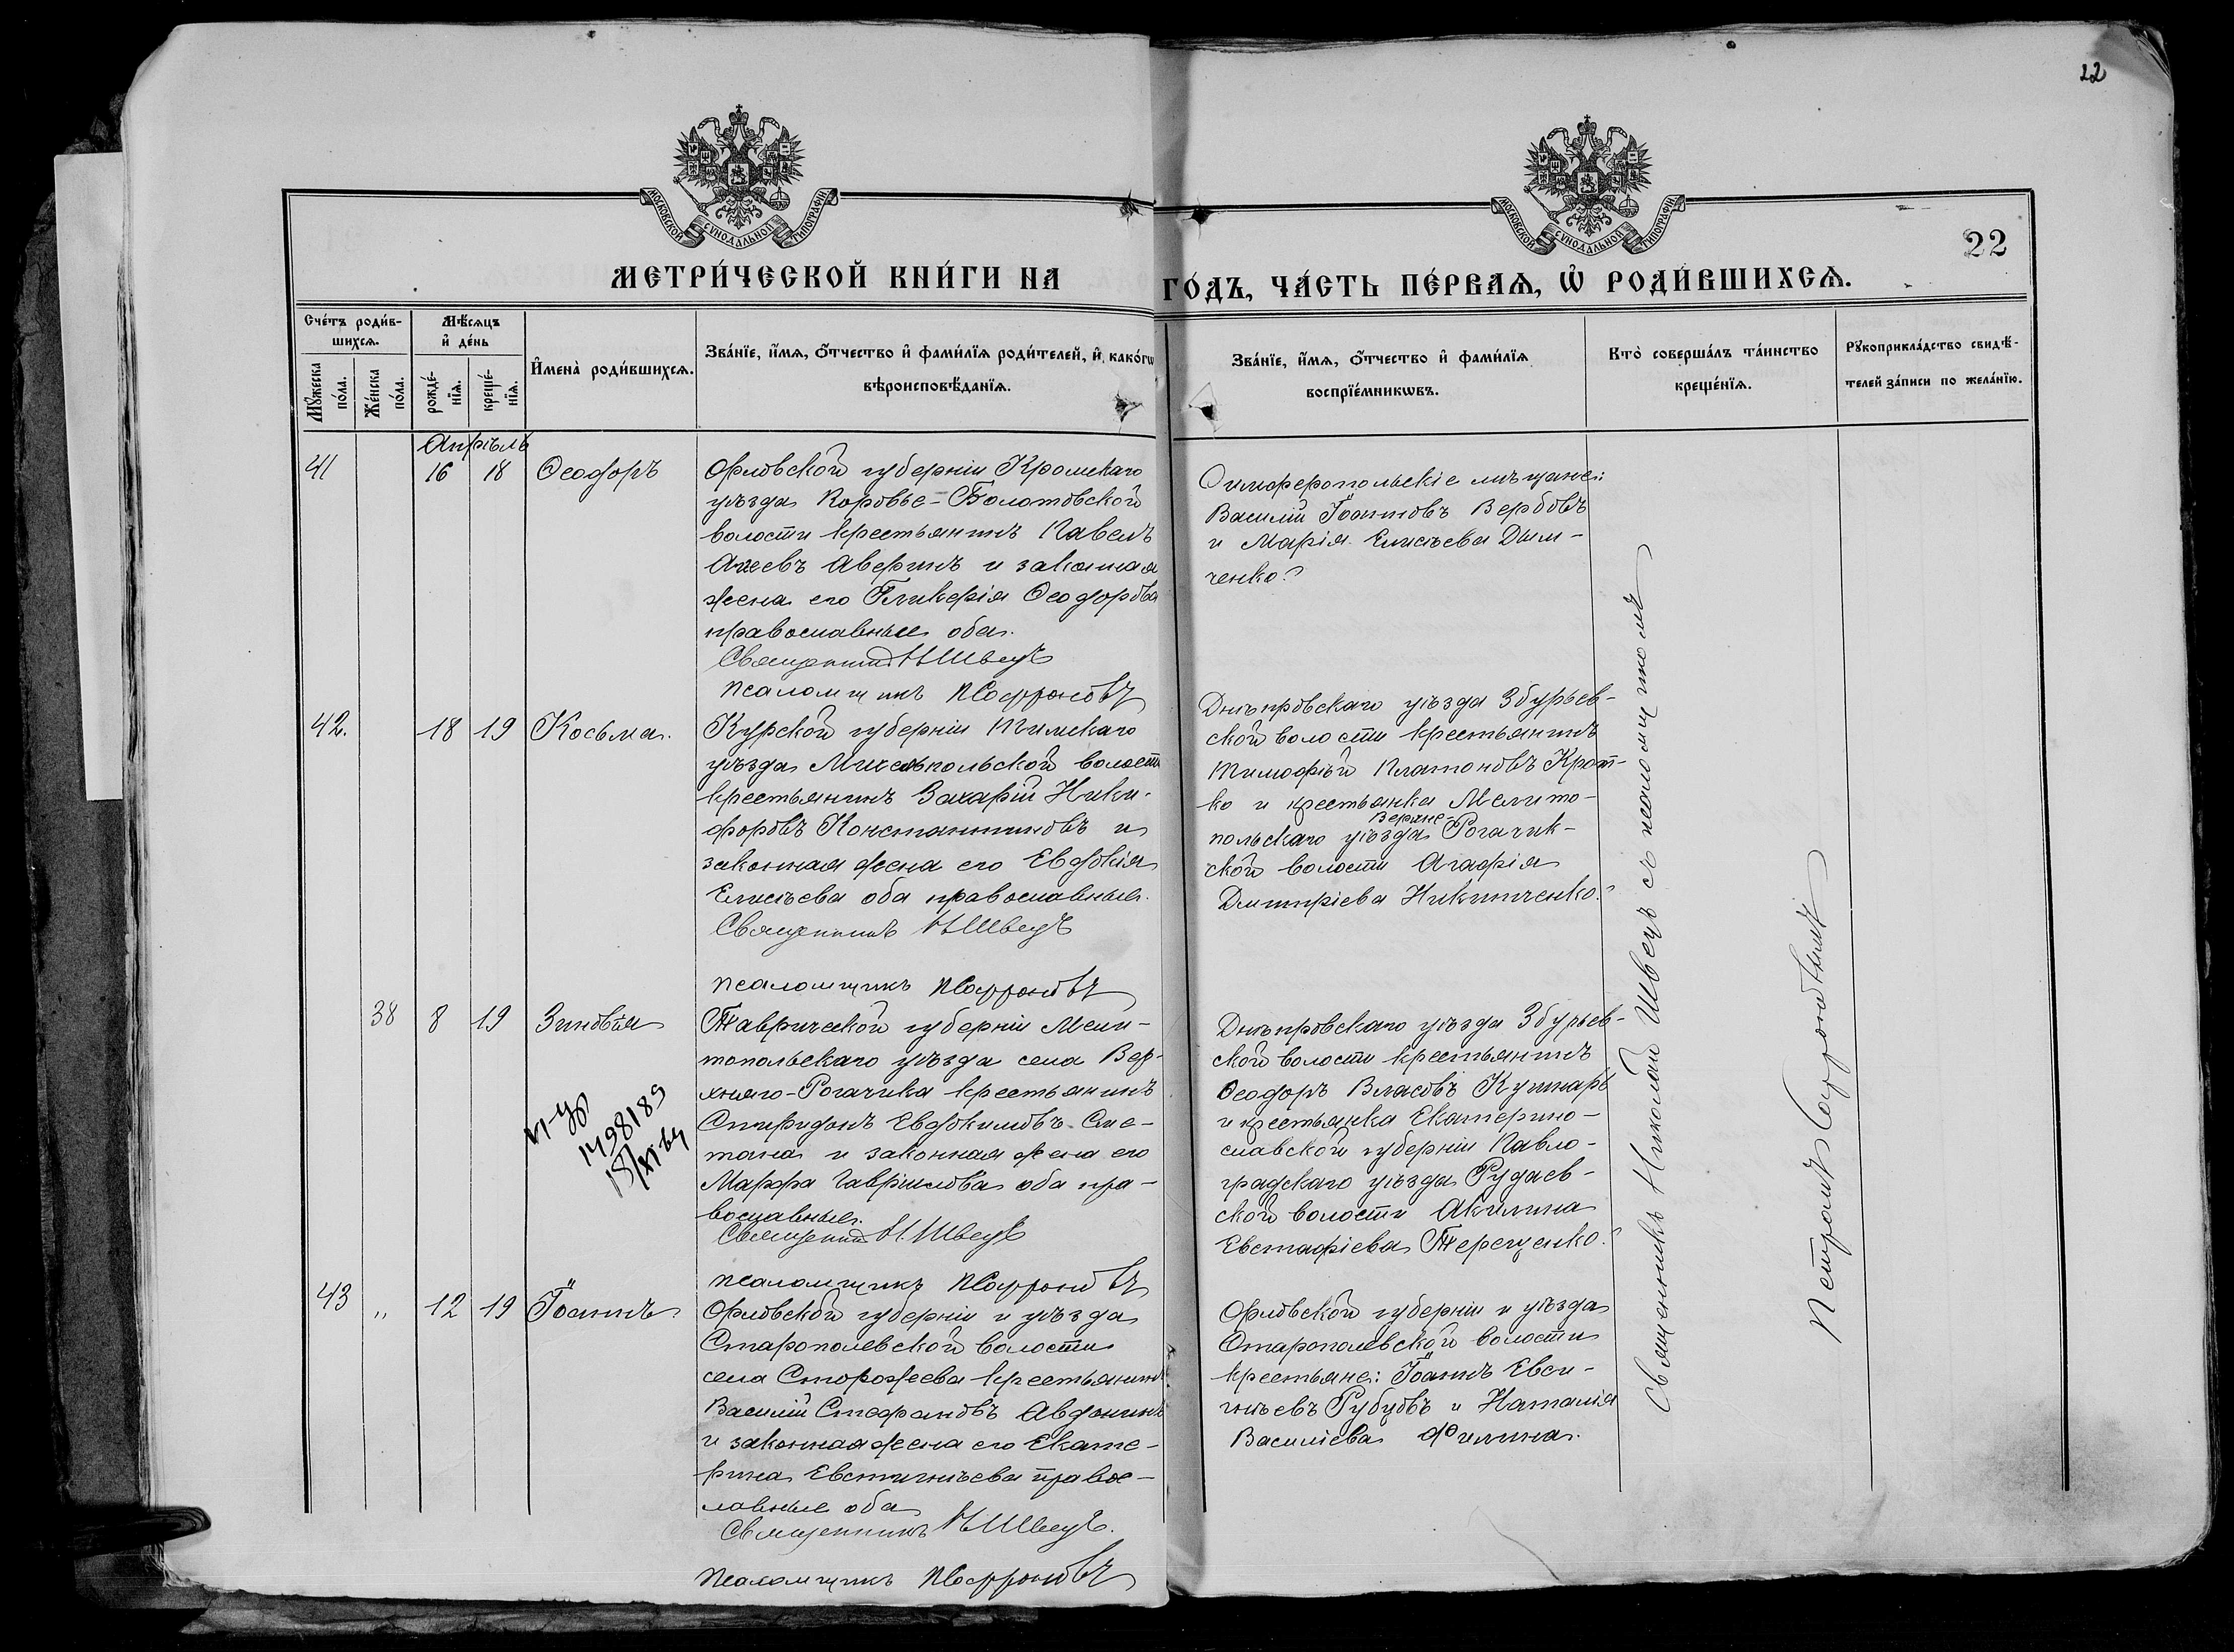 22
МОСКОВСКОЙ СУНОДАЛЬНОЙ ТИПОГРАФІИ
МОСКОВСКОЙ СУНОДАЛЬНОЙ ТИПОГРАФІИ
22
МЕТРИ́ЧЕСКОЙ КНИ́ГИ НА ГО́ДЪ, ЧА́СТЬ ПЕ́РВАѦ, Ѡ҆ РОДИ́ВШИХСѦ.
Сче́тъ роди́в-
шихсѧ.
Мꙋ́жеска по́ла.
Же́нска по́ла.
Мѣ́сѧцъ
и҆ де́нь
рожде́-
нїѧ.
креще́-
нїѧ.
И҆мена̀ роди́вшихсѧ.
Зва́нїе, и҆́мѧ, ѻ҆́тчество и҆ фами́лїѧ роди́телей, и҆ како́гѡ
вѣроисповѣ́данїѧ.
Зва́нїе, и҆́мѧ, ѻ҆́тчество и҆ фами́лїѧ
воспрїе́мникѡвъ.
Кто̀ соверша́лъ та́инство
креще́нїѧ.
Рꙋкоприкла́дство свидѣ́-
телей за́писи по жела́нїю.
Апрѣль
41 16 18 Ѳеодоръ
Орловской губерніи Кромскаго
уѣзда Коровье-Болотовской
волости крестьянинъ Павелъ
Агеевъ Аверинъ и законная
жена его Гликерія Ѳеодорова
православные оба.
Священникъ Н Швецъ
Псаломщикъ ПСафроновъ
Симферопольскіе мѣщане:
Василій Іоанновъ Вербовъ
и Марія Елисѣева Дым-
ченко.
42. 18 19 Косьма.
Курской губерніи Тимскаго
уѣзда Михельпольской волости
крестьянинъ Захарій Ники-
форовъ Константиновъ и
законная жена его Евдокія
Елисѣева оба православные.
Священникъ Н Швецъ
Псаломщикъ ПСафроновъ
Днѣпровскаго уѣзда Збурьев-
ской волости крестьянинъ
Тимофей Платоновъ Крот-
ко и крестьянка Мелито-
Верхне-
польскаго уѣзда Рогачик-
ской волости Агафія
Димитріева Никитченко.
38 8 19 Зиновія
Таврической губерніи Мели-
топольскаго уѣзда села Вер-
хняго-Рогачика крестьянинъ
Спиридонъ Евдокимовъ Сме-
тана и законная жена его
Марфа Гавріилова оба пра-
вославные.
Священникъ Н. Швецъ
Псаломщикъ ПСафроновъ
1498189
Днѣпровскаго уѣзда Збурьев-
ской волости крестьянинъ
Ѳеодоръ Власовъ Кушнарь
и крестьянка Екатерино-
славской губерніи Павло-
градскаго уѣзда Рудаев-
ской волости Акилина
Евстафіева Терещенко.
43 „ 12 19 Іоаннъ.
Орловской губерніи и уѣзда
Старополевской волости
села Сторожева крестьянинъ
Василій Стефановъ Авдонинъ
и законная жена его Екате-
рина Евстигнѣева право-
славные оба
Священникъ Н Швецъ.
Псаломщикъ ПСафроновъ
Орловской губерніи и уѣзда
Старополевской волости
крестьяне: Іоаннъ Евси-
гнѣевъ Рубцовъ и Наталія
Василіева Филина.
Священникъ Николай Швецъ съ псаломщикомъ
Петромъ Сафроновымъ